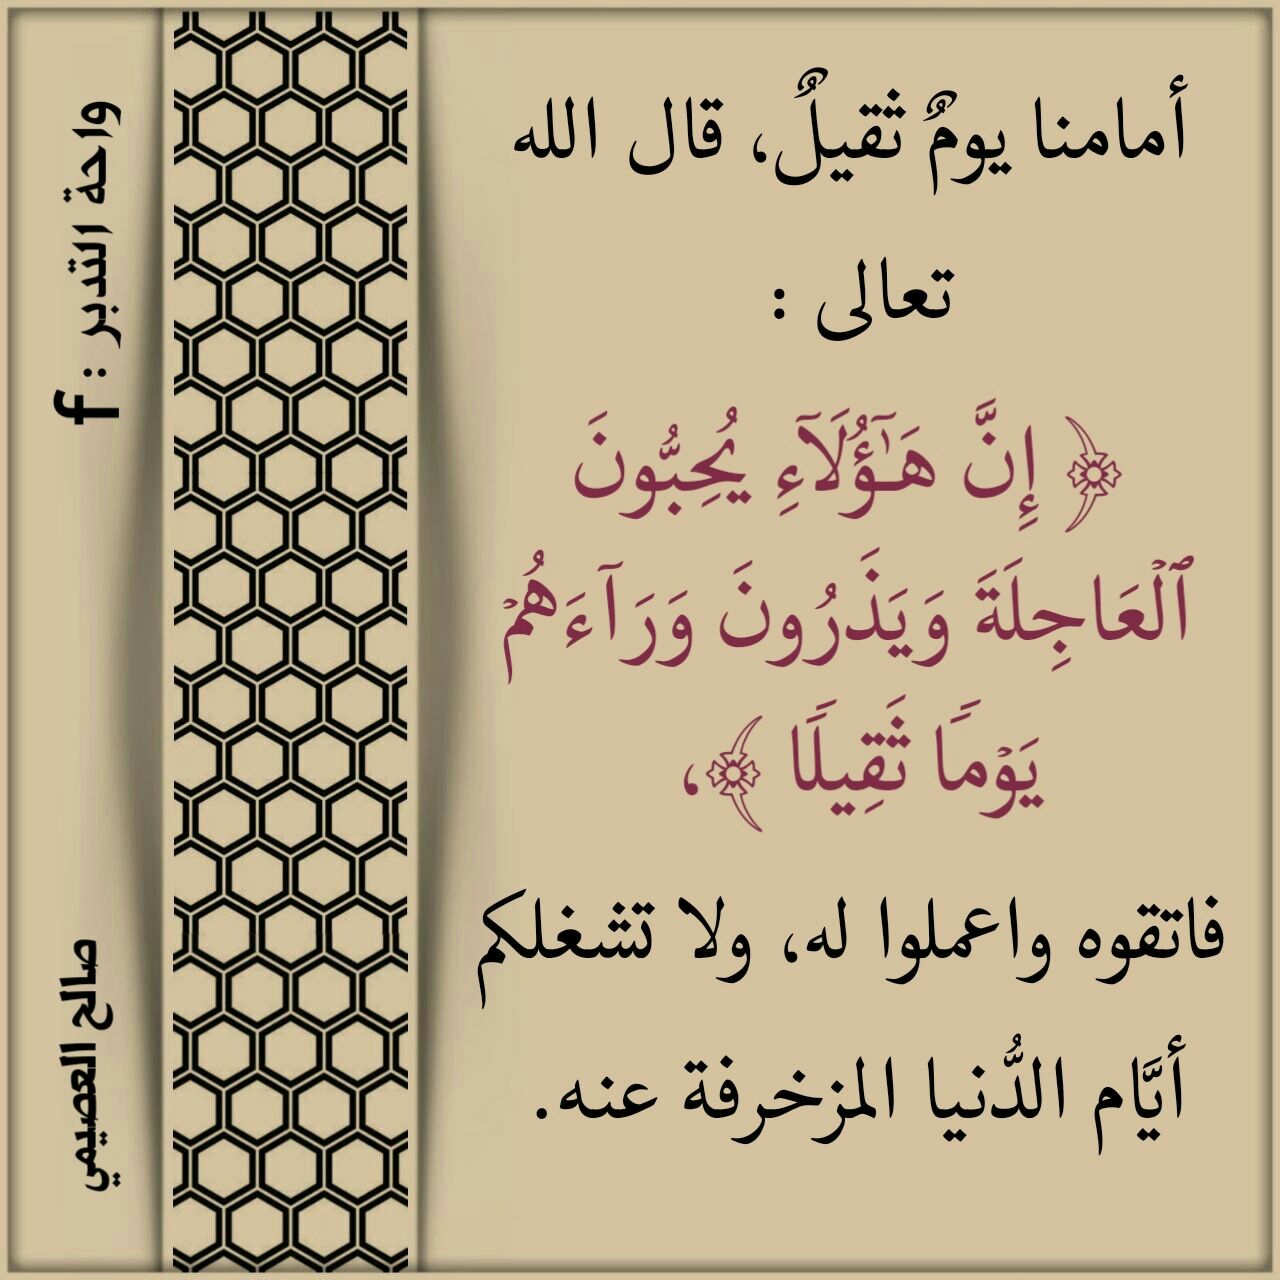 أمامنا يومٌ ثقيلٌ، قال الله
تعالى :
﴿ إِنَّ هَـٰٓؤُلَآءِ يُحِبُّونَ
ٱلْعَاجِلَةَ وَيَذَرُونَ وَرَآءَهُمْ
يَوْمًا ثَقِيلًا ﴾،
فاتقوه واعملوا له، ولا تشغلكم
أيَّام الدُّنيا المزخرفة عنه.
واحة التدبر : f
صالح العصيمي